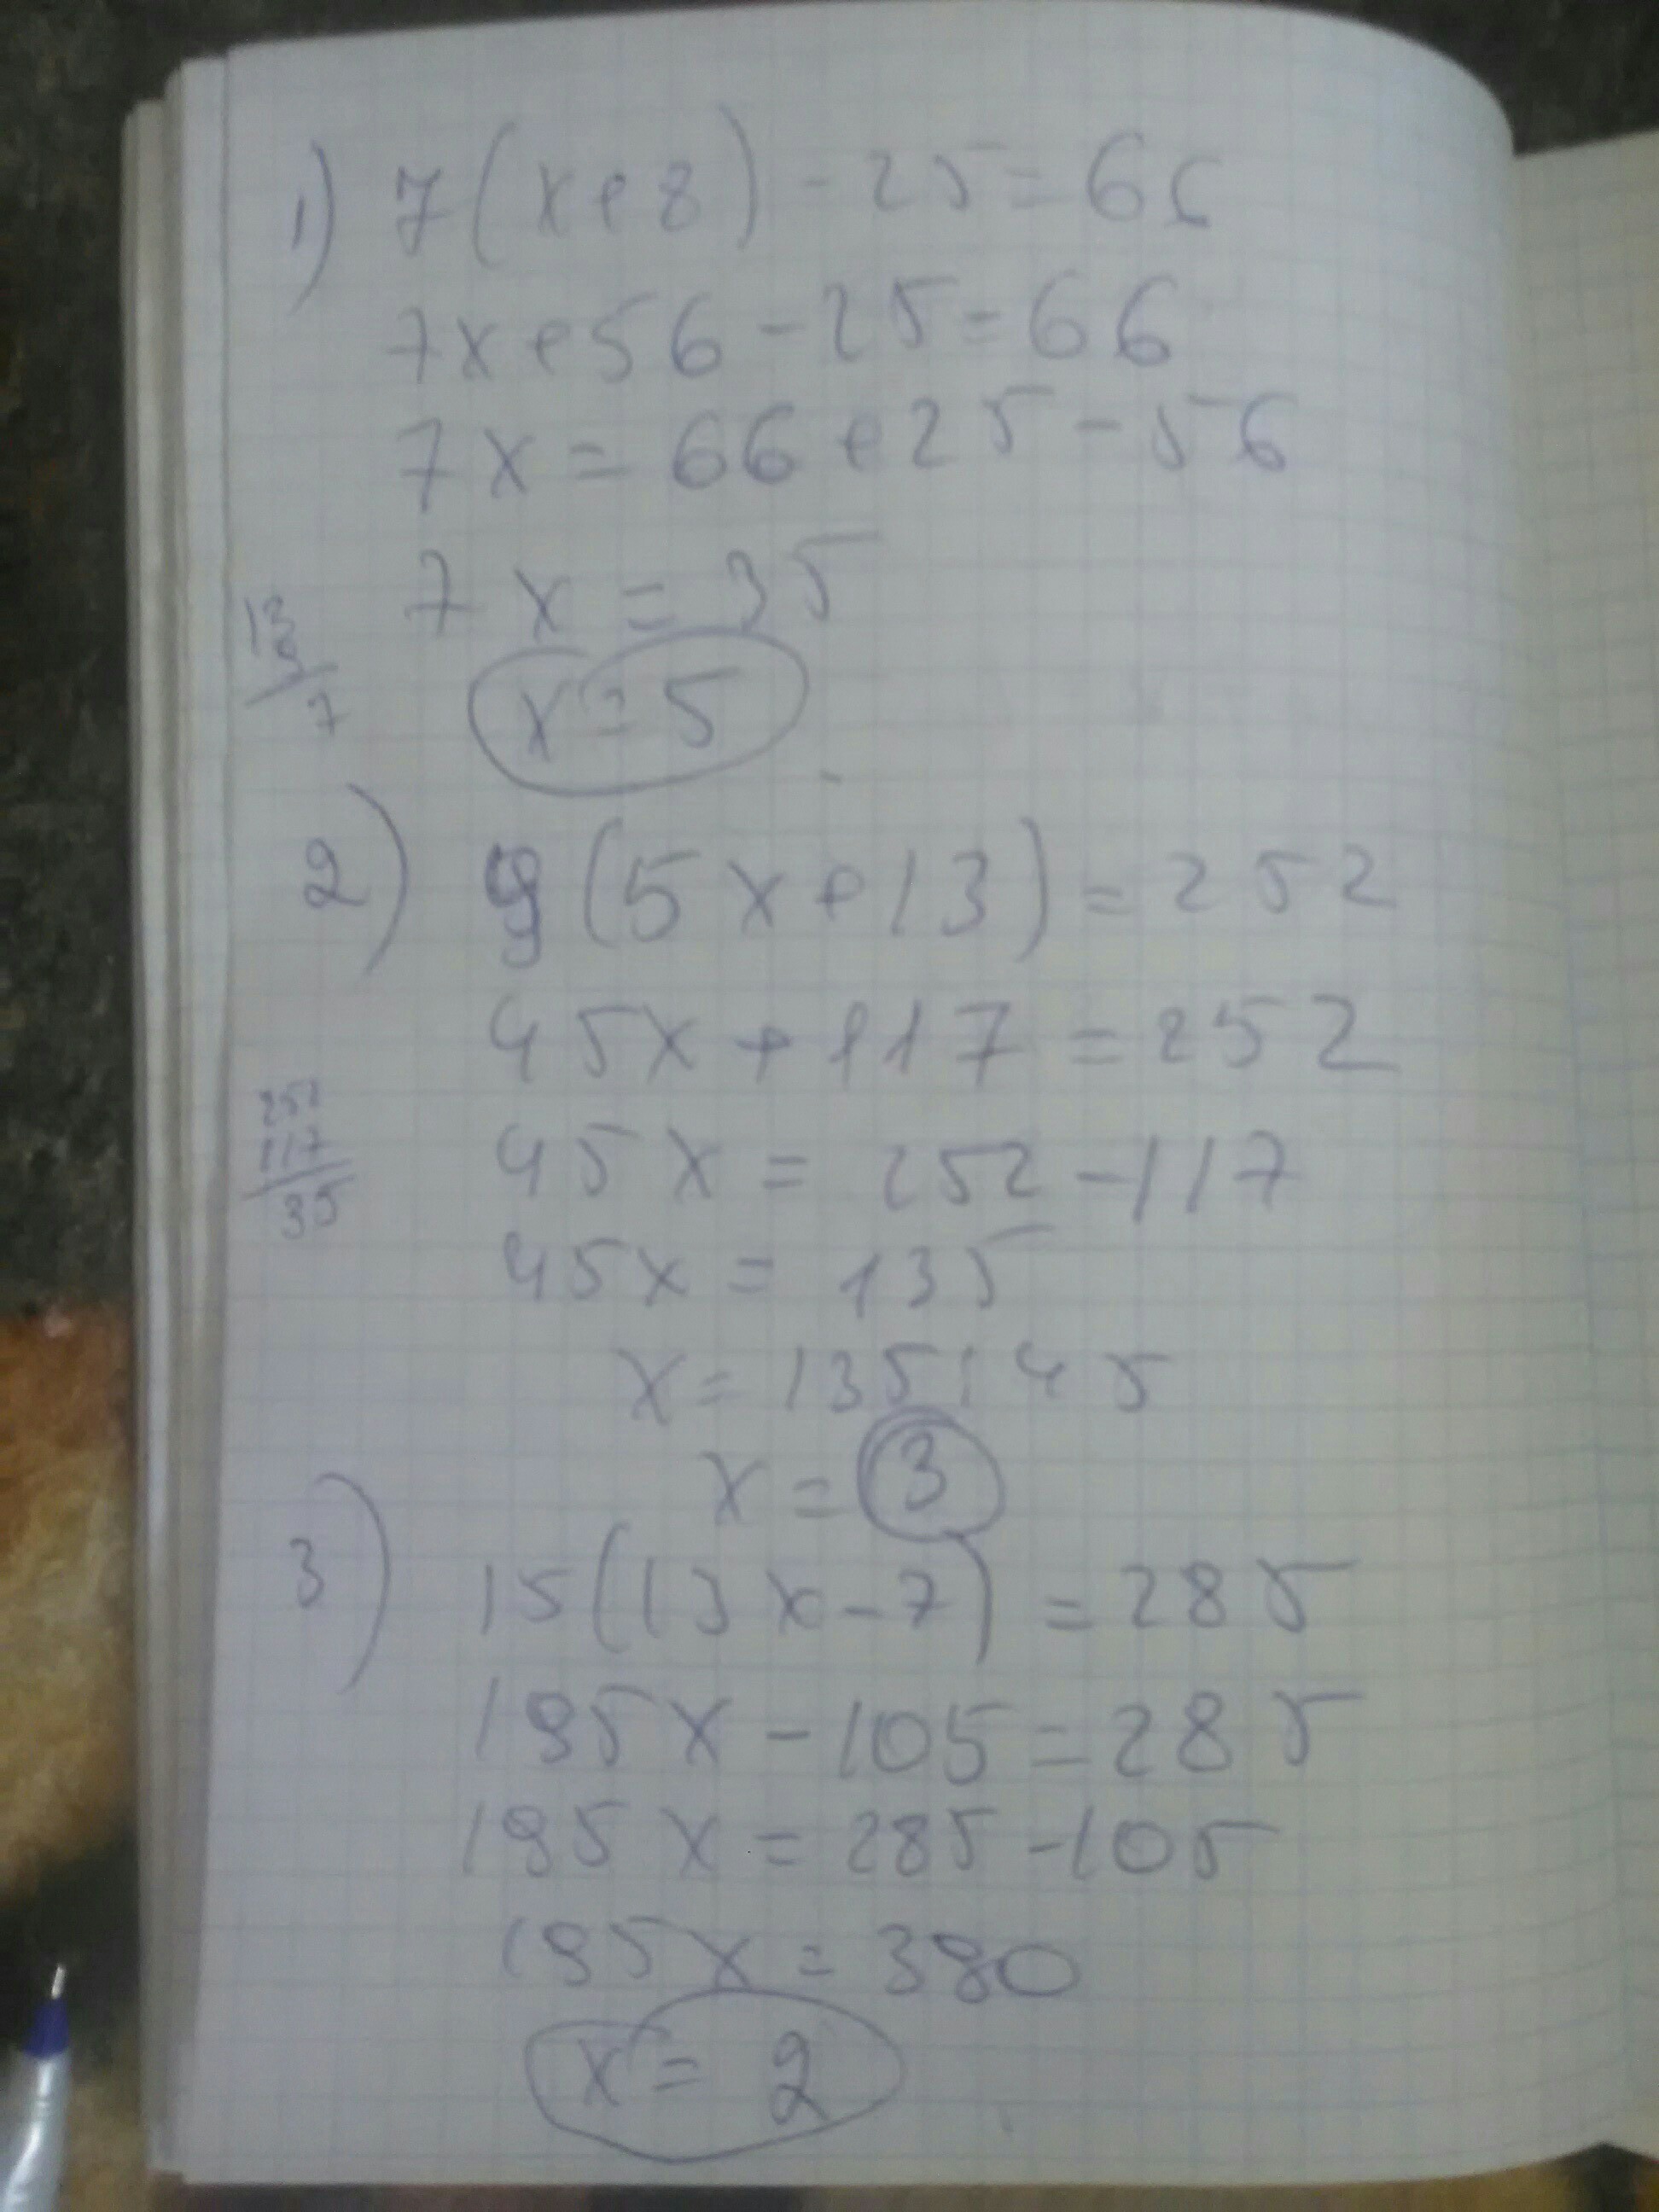 1) 7(x+8)-25=66
7x+56-25=66
7x=66+25-56
7x=35
13
9
7
x=5
2) 9(5x+13)=252
45x+117=252
252
117
35
45x=252-117
45x=135
x=135:45
x=3
3) 15(13x-7)=285
195x-105=285
195x=285-105
195x=390
x=2